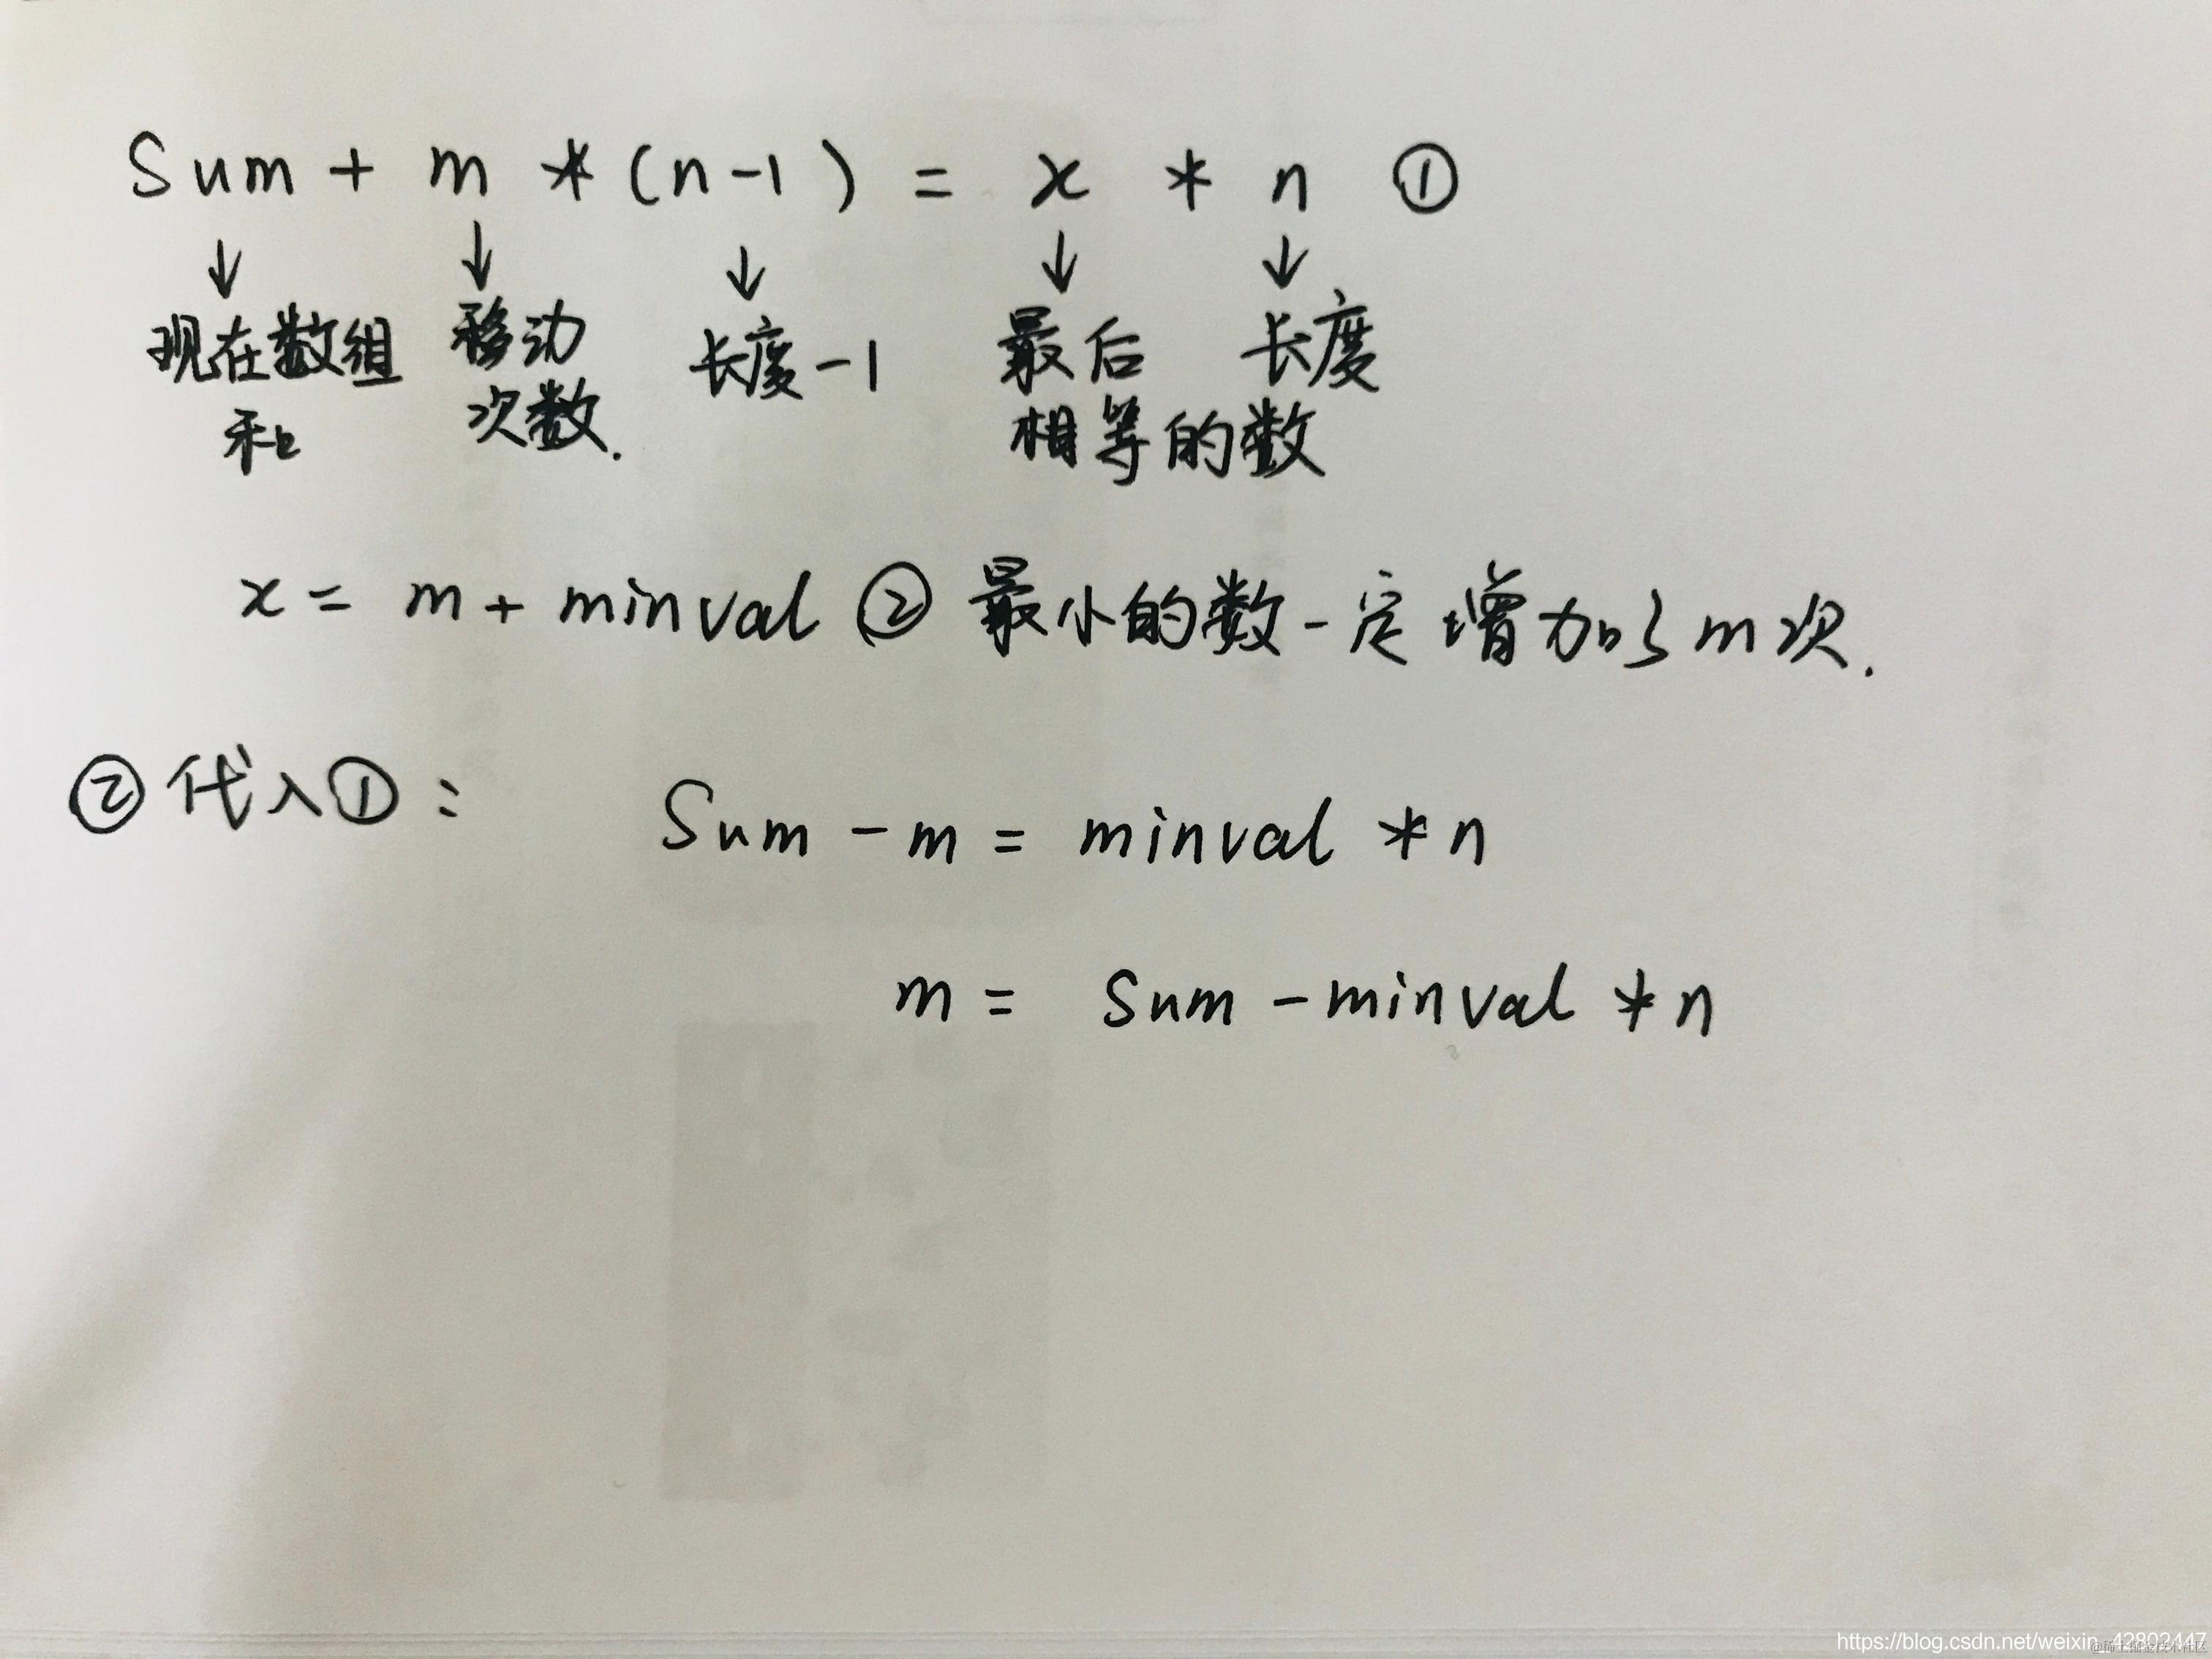 Sum + m * (n-1) = x * n ①
↓ ↓ ↓ ↓ ↓
现在数组 移动 长度-1 最后 长度
和 次数. 相等的数
x = m + minval ② 最小的数一定增加了m次.
②代入①: Sum - m = minval * n
m = Sum - minval * n
https://blog.csdn.net/weixin_42802447
@稀土掘金技术社区